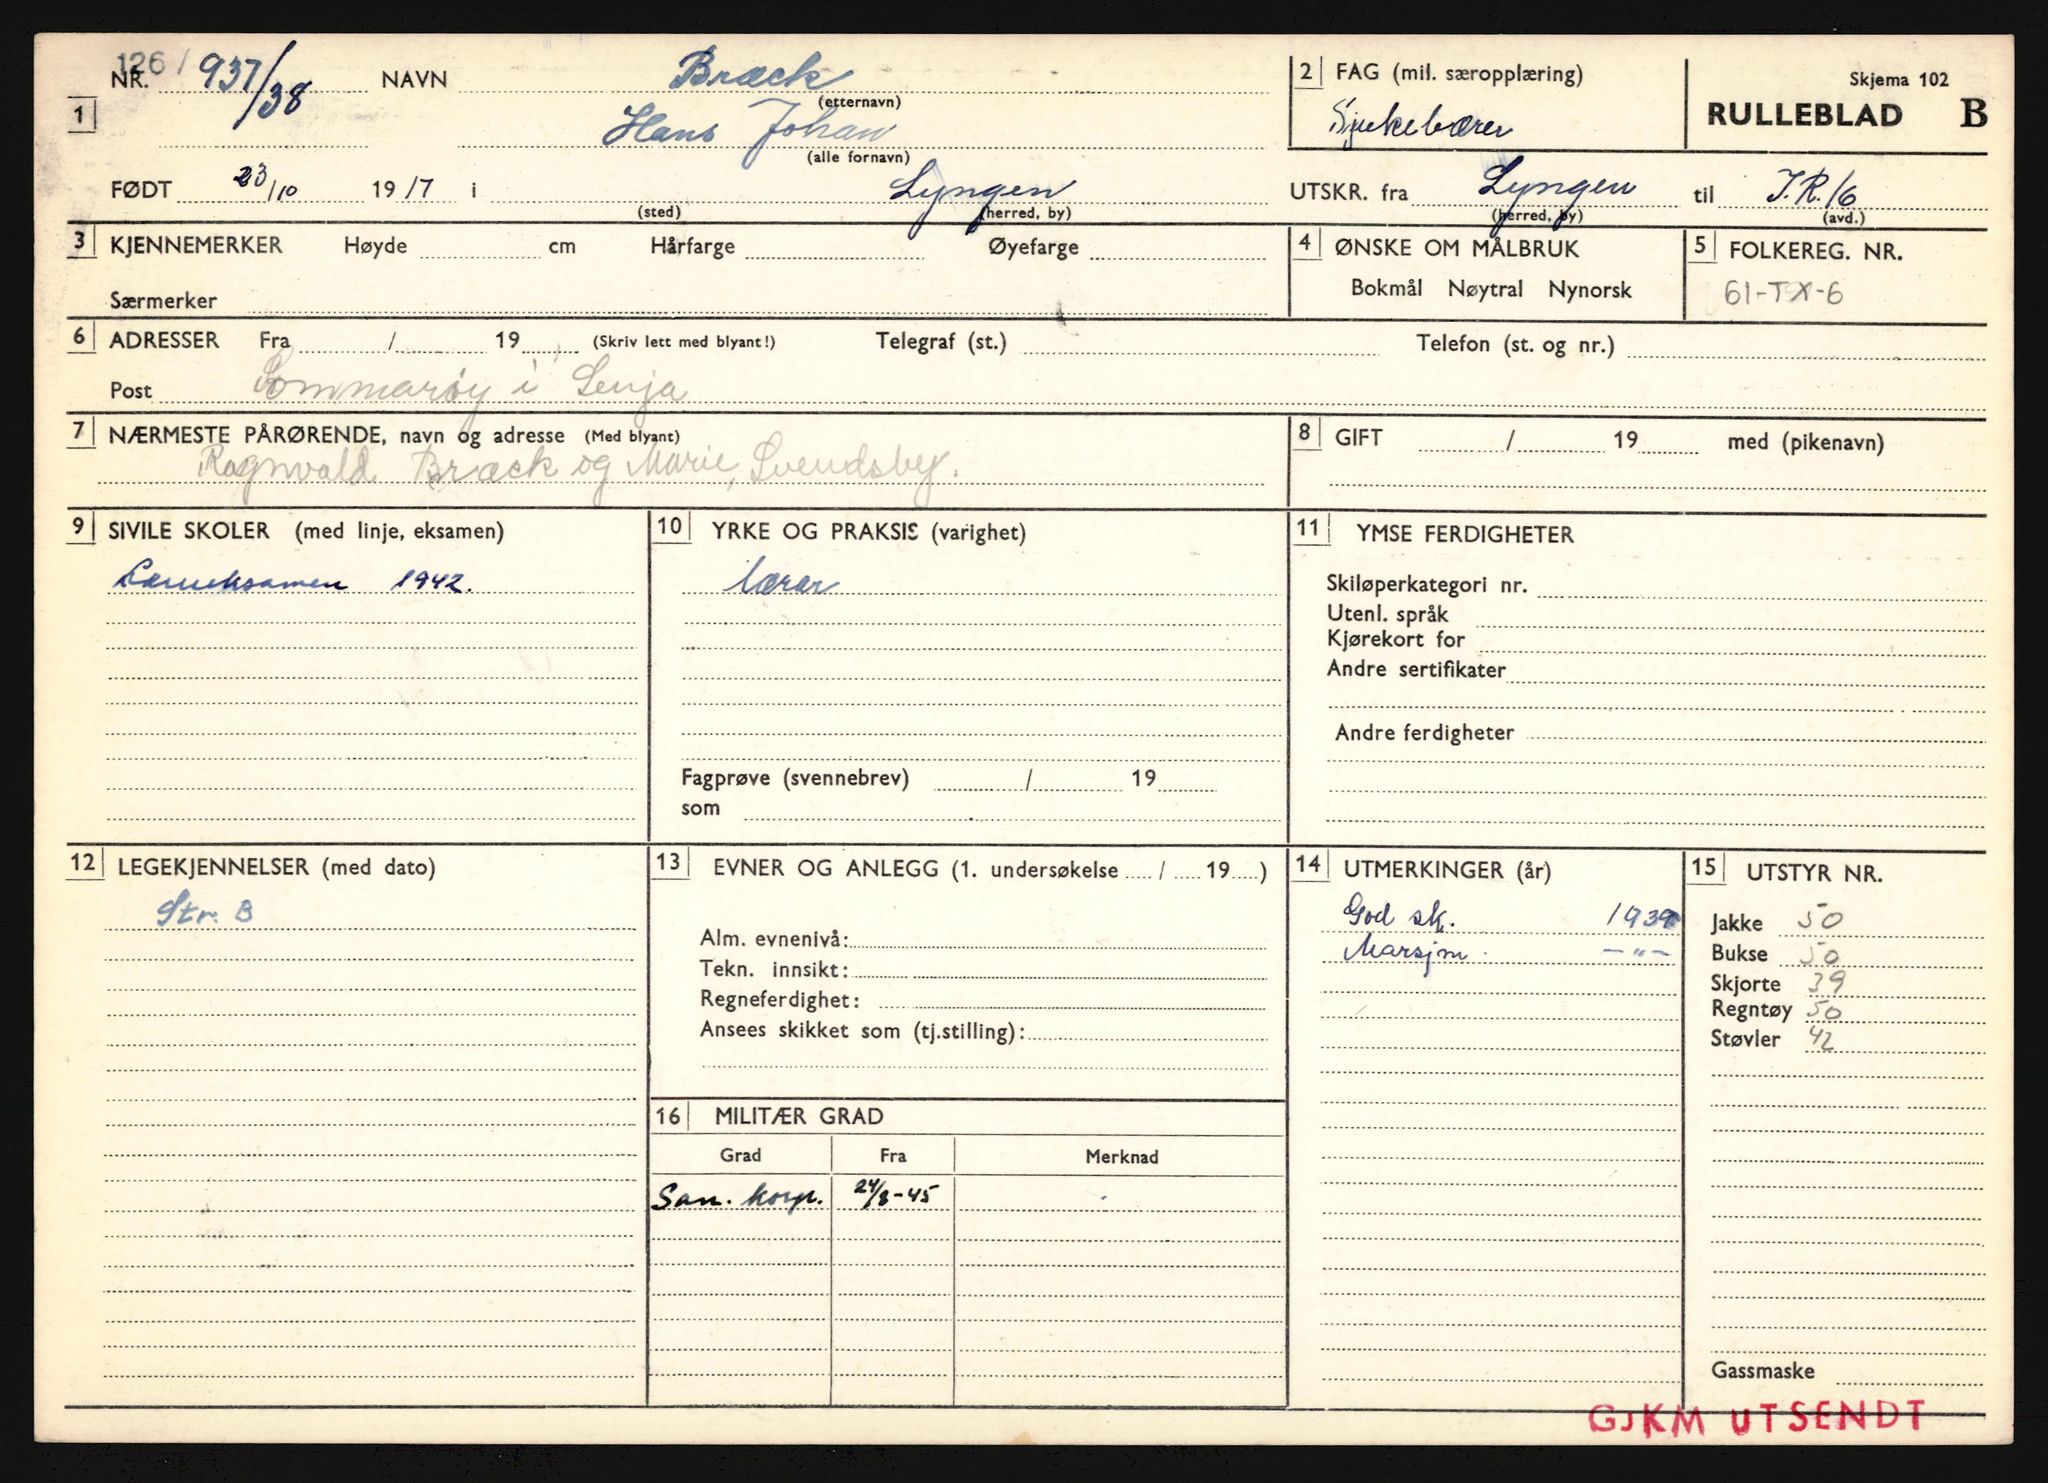 126/ NR. 937/38 NAVN Bræck (etternavn)
1 Hans Johan (alle fornavn)
FØDT 23/10 1917 i (sted) Lyngen (herred, by)
2 FAG (mil. særopplæring)
Sjukebærer
Skjema 102
RULLEBLAD B
UTSKR. fra Lyngen (herred, by) til I.R.16 (avd.)
3 KJENNEMERKER Høyde cm Hårfarge Øyefarge
Særmerker
4 ØNSKE OM MÅLBRUK
Bokmål Nøytral Nynorsk
5 FOLKEREG. NR.
61-TX-6
6 ADRESSER Fra / 19 (Skriv lett med blyant!) Telegraf (st.) Telefon (st. og nr.)
Post Sommarøy i Senja
7 NÆRMESTE PÅRØRENDE, navn og adresse (Med blyant)
Ragnvald Bræck og Marie, Svendsby.
8 GIFT / 19 med (pikenavn)
9 SIVILE SKOLER (med linje, eksamen)
Læreeksamen 1942.
10 YRKE OG PRAKSIS (varighet)
lærar
Fagprøve (svennebrev) / 19
som
11 YMSE FERDIGHETER
Skiløperkategori nr.
Utenl. språk
Kjørekort for
Andre sertifikater
Andre ferdigheter
12 LEGEKJENNELSER (med dato)
Str. B
13 EVNER OG ANLEGG (1. undersøkelse / 19 )
Alm. evnenivå:
Tekn. innsikt:
Regneferdighet:
Ansees skikket som (tj.stilling):
14 UTMERKINGER (år)
God sk. 1939
Marsjm. —"—
15 UTSTYR NR.
Jakke 50
Bukse 50
Skjorte 39
Regntøy 50
Støvler 42
Gassmaske
16 MILITÆR GRAD
Grad Fra Merknad
San. korp. 24/8-45
GJKM UTSENDT